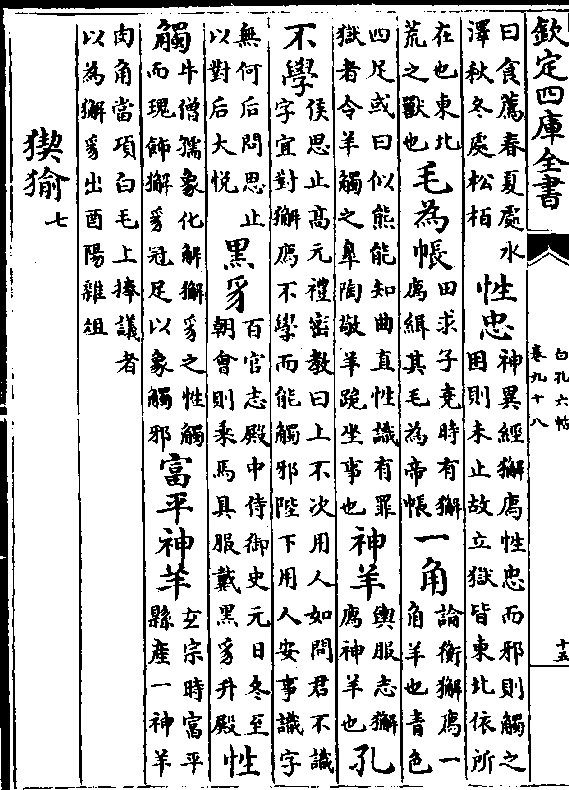 欽定四庫全書
白孔六帖
卷九十八
十五
曰食薦春夏處水澤秋冬處松栢性忠神異經獬廌性忠而邪則觸之困則未止故立獄皆東北依所
在也東北荒之獸也毛為帳田求子堯時有獬廌緝其毛為帝帳一角論衡獬廌一角羊也青色
四足或曰似熊能知曲直性識有罪獄者令羊觸之臯陶敬羊跪坐事也神羊輿服志獬廌神羊也孔
不學侯思止高元禮密教曰上不次用人如問君不識字宜對獬廌不學而能觸邪陛下用人安事識字
無何后問思止以對后大悅黑豸百官志殿中侍御史元日冬至朝會則乘馬具服戴黑豸升殿性
觸牛僧孺象化解獬豸之性觸而瑰飾獬豸冠足以象觸邪富平神羊玄宗時富平縣產一神羊
肉角當項白毛上捧議者以為獬豸出酉陽雜俎
猰㺄七